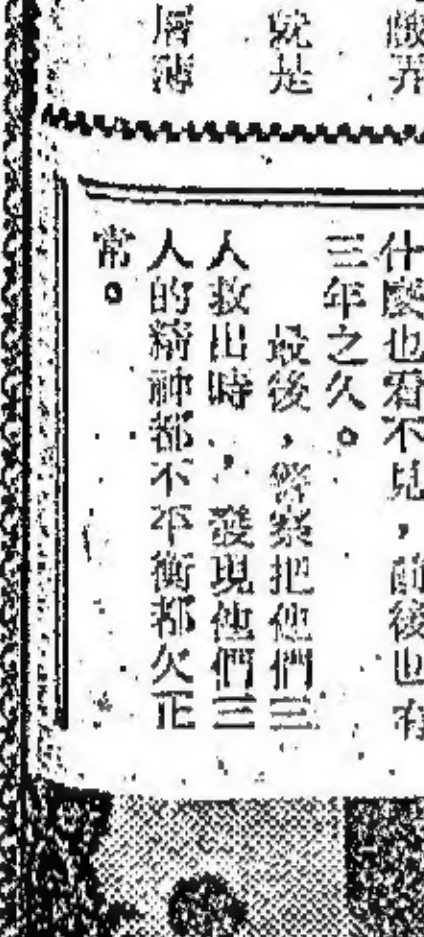 就是
什麼也看不見,前後也有
三年之久。
最後,警察把他們三
人救出時,發現他們三
人的精神都不平衡都欠正
常。